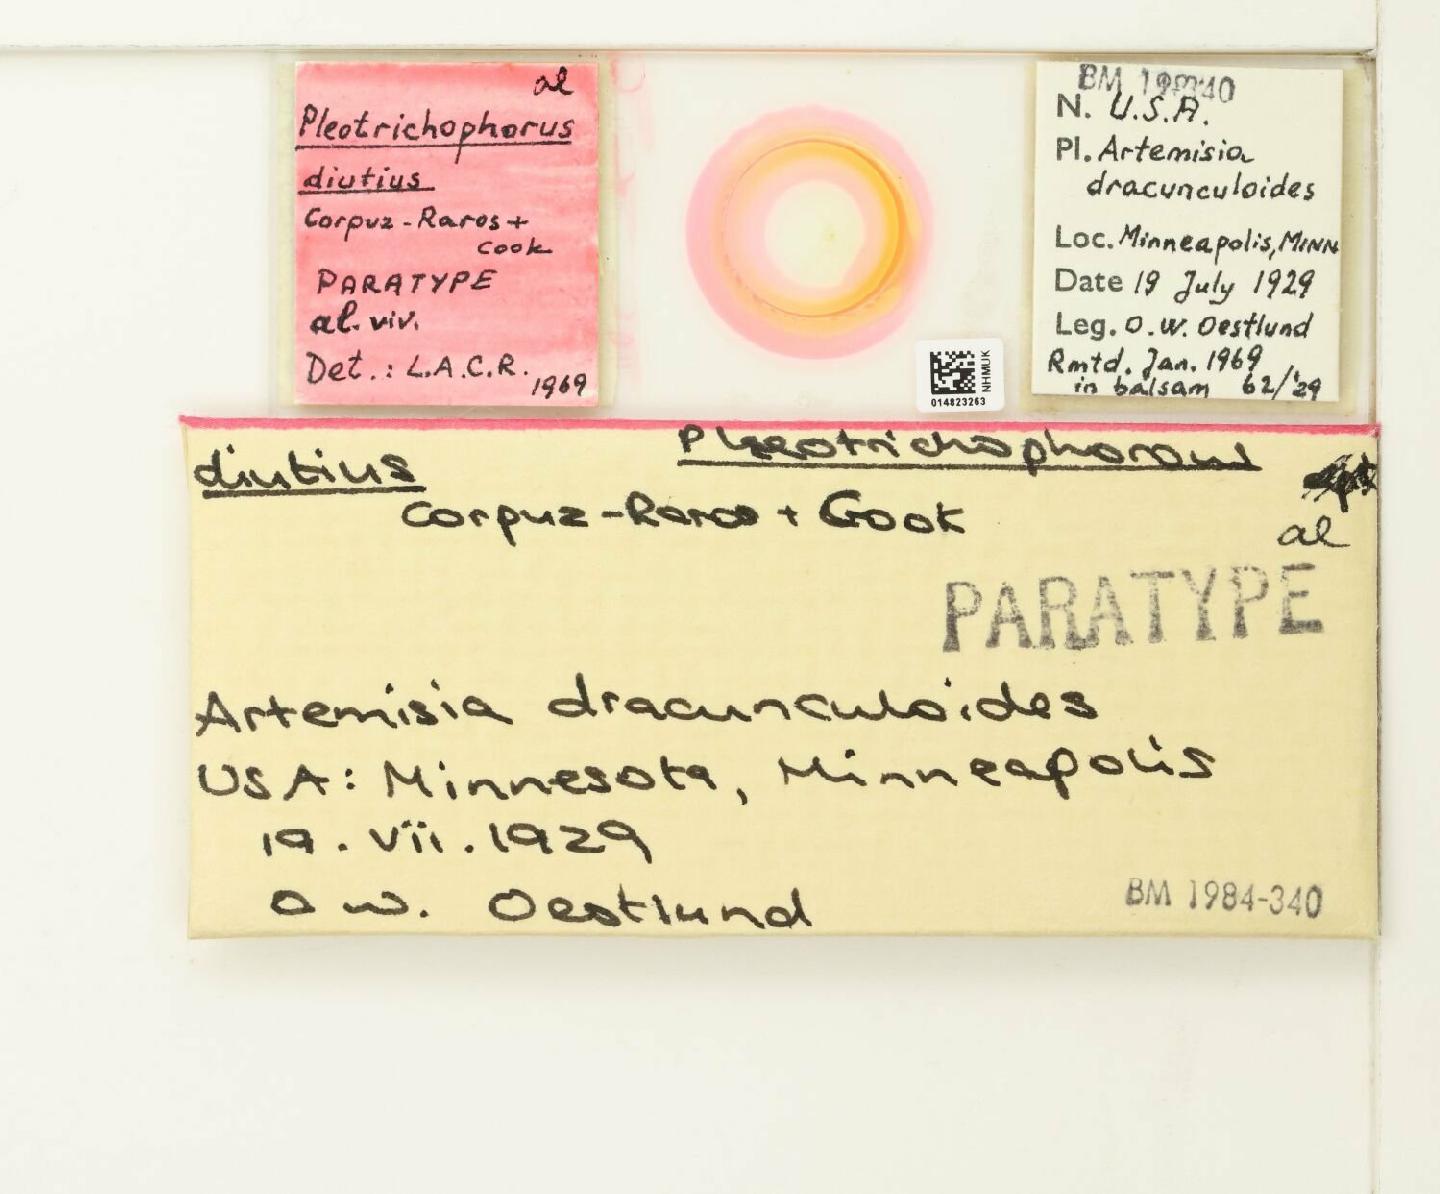 al
Pleotrichophorus
diutius
Corpuz-Raros +
Cook
PARATYPE
al. viv.
Det.: L.A.C.R.
1969
NHMUK
014823263
N. U.S.A.
Pl. Artemisia
dracunculoides
Loc. Minneapolis, MINN
Date 19 July 1929
Leg. O.W. Oestlund
Rmtd. Jan. 1969
in balsam 62/'29
diutius
Corpuz-Raros + Cook
al
PARATYPE
Artemisia dracunculoides
USA: Minnesota, Minneapolis
19. vii. 1929
O W. Oestlund
BM 1984-340